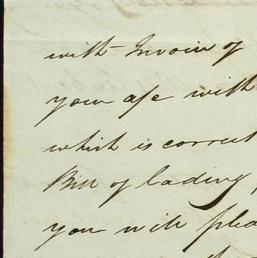 with Invoice of
your a/c with
which is correct
Bill of lading,
you will plea